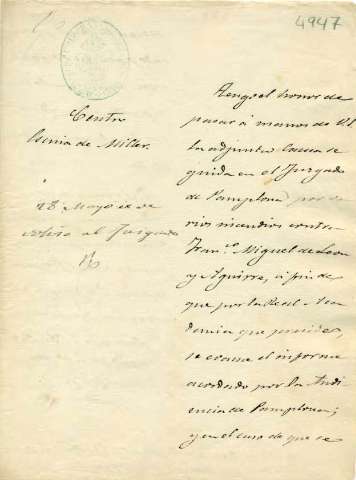 4947
Centro
Escnia de Miller.
28 Mayo
al Juzgado
Tengo el honor de
pasar á manos de V.I.
la adjunta Causa se
guida en el Juzgado
de Pamplona, por va
rios incendios contra
Fran.co Miguel de Leon
y Aguirre, á fin de
que por la Real Aca
demia que preside,
se evacue el informe
acordado por la Audi
encia de Pamplona;
y en el caso de que se